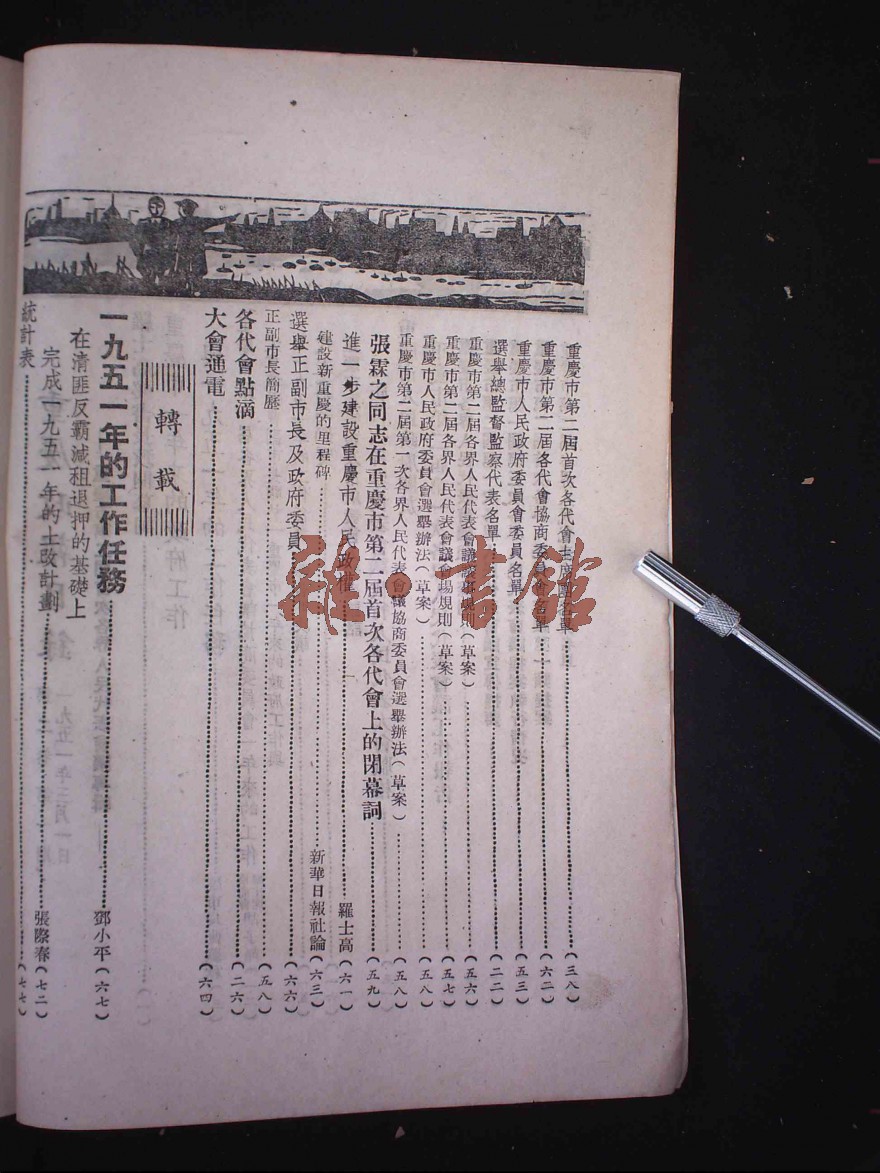 重慶市第二屆首次各代會主席團名單……（三八）
重慶市第二屆各代會協商委員會名單……（六二）
重慶市人民政府委員會委員名單……（五三）
選舉總監督監察代表名單……（二二）
重慶市第二屆各界人民代表會議議事規則（草案）……（五六）
重慶市第二屆各界人民代表會議會場規則（草案）……（五七）
重慶市人民政府委員會選舉辦法（草案）……（五八）
重慶市第二屆第一次各界人民代表會議協商委員會選舉辦法（草案）……（五八）
張霖之同志在重慶市第二屆首次各代會上的閉幕詞……（五九）
進一步建設重慶市人民政權……羅士高（六一）
建設新重慶的里程碑……新華日報社論（六三）
選舉正副市長及政府委員……（六六）
正副市長簡歷……（五八）
各代會點滴……（二六）
大會通電……（六四）
轉載
一九五一年的工作任務……鄧小平（六七）
在清匪反霸減租退押的基礎上
完成一九五一年的土改計劃……張際春（七二）
統計表……（七七）
雜·書館